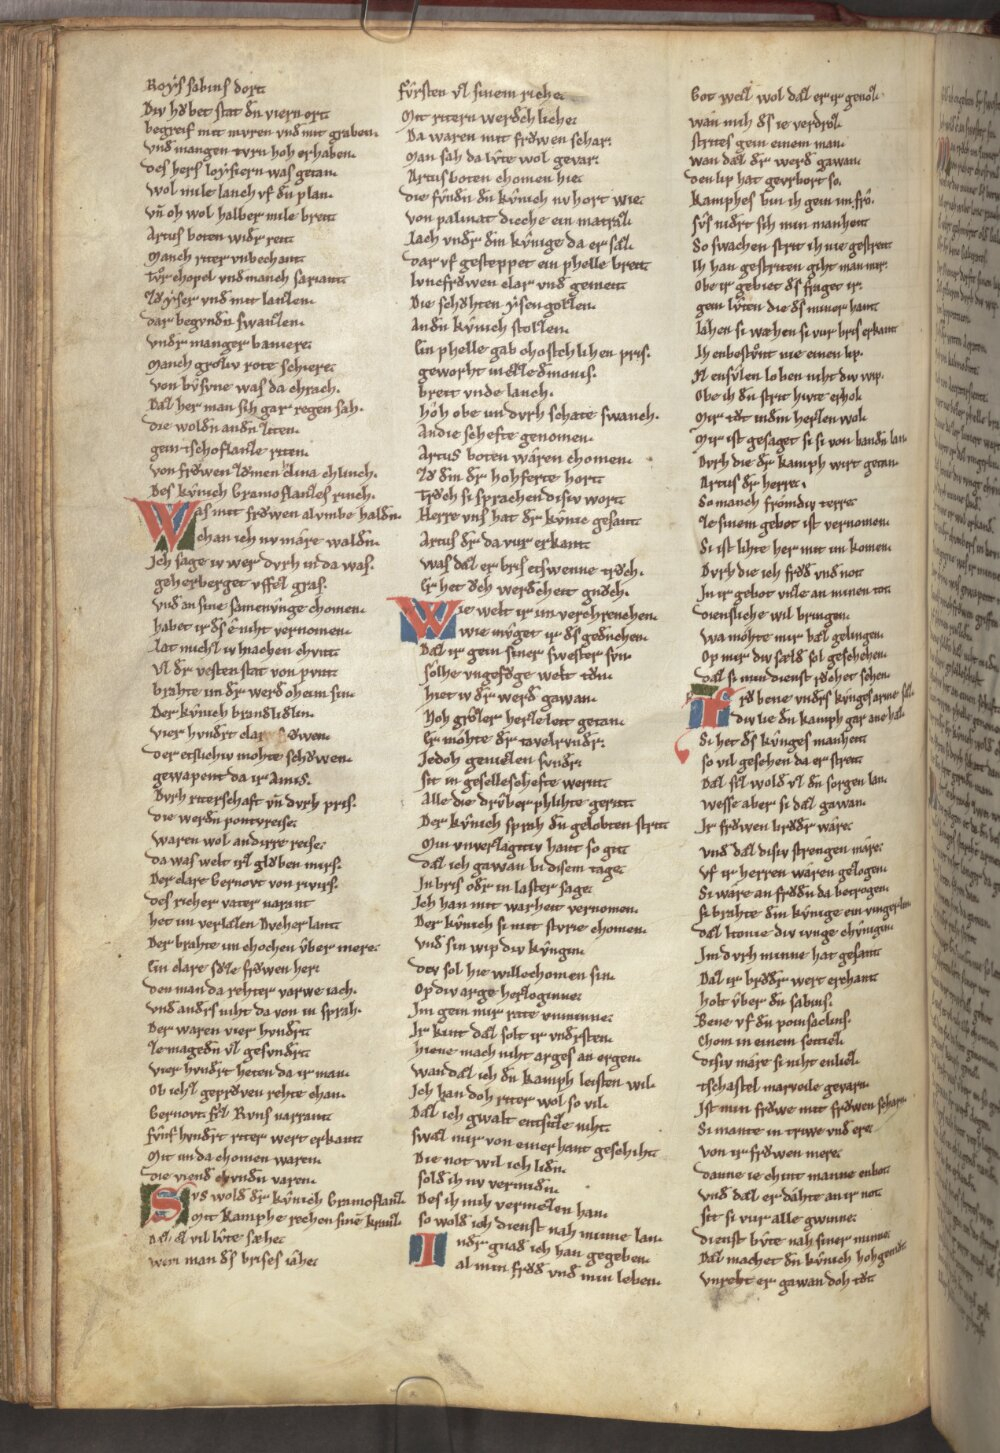 Roys sabins dort.
Div hꝰbet stat dñ viern ort
begreif mit mvren vnd mit graben.
vnd mangen tvrn hoh erhaben.
des hers loysiern was getan.
wol mile lanch vf dñ plan.
vñ oh wol halber mile breit
Artus boten widr reit
Manch riter vnbechant
tvrchopel vnd manch sariant
vnd mit lanzen.
dar begvndn swanzen.
vndr manger baniere.
Manch grozzv rote schiere.
von bysvne was da chrach.
Daz her man sih gar regen sah.
die woldn andn ziten.
gein tschoflanze riten.
von frowen chlinch.
Des kvnich Gramoflanzes rinch.
Was mit frowen al vmbe haldn.
chan ich nv mære waldn.
Ich sage iv wer dvrh in da was.
geherberget vffez gras.
vnd an sine samenvnge chomen.
habet ir ds e niht vernomen.
Lat michz iv machen chvnt
vz dr vesten stat von pvnt
brahte im dr werd oheim sin.
Der kvnich brandlidlin.
vier hvndrt clar frowen.
der etslichiv mohte schowen.
gewapent da ir Amis.
Dvrh riterschaft vñ dvrh pris.
die werdn pontvreise.
waren wol an dirre reise.
da was welt irz glovben mirs.
Der clare Gernovt von rivirs.
des richer vater narant
het im verlazen Dveherlant
Der brahte im chochen vber mere.
Ein clare frowen her.
den man da rehter varwe iach.
vnd andrs niht da von in sprah.
Der waren vier hvndrt
ze magedn vz gesvndrt
vier hvndrt heten da ir man.
Ob ichz geproven rehte chan.
Gernovt fiz Rvns narrant
fvnf hvndrt riter wert erkant
Mit im da chomen waren.
die viend chvndn varen.
Svs wold dr kvnich Gramoflanz
Mit kamphe rechen sinē kranz
Daz ez vil lvte sæhe.
wem man ds brises iahe.
fvrsten vz sinem riche.
Mit ritern werdchliche.
Da waren mit frowen schar.
Man sah da lvte wol gevar.
Artus boten chomen hie.
die fvndn dn kvnich nv hort wie.
von palmat dicche ein matraz.
Lach vndr dm kvnige da er saz.
dar vf gesteppet ein phelle breit
Ivncfrowen clar vnd gemeit
Die schvhten ysen gozzen.
An dn kvnich stozzen.
Ein phelle gab chostchlihen pris.
geworht in
breit vnde lanch.
Hoh obe im dvrh schate swanch.
An die schefte genomen.
Artus boten waren chomen.
zv dm dr hohferte hort
troch si sprachen disiv wort
Herre vns hat dr kvnic gesant
Artus dr da vur erkant
was daz er bris etswenne trvch.
Er het ovch werdcheit gnvch.
Wie welt ir im verchrenchen.
wie mvget ir ds gedenchen.
Daz ir gein siner swester svn.
solhe vngefvge welt tvn.
hiet iv dr werd gawan.
Noh grozer herzeleit getan.
Er mohte dr tavelrvndr.
Jedoh geniezen svndr.
sit in geselleschefte wernt
Alle die drvber phlihte gernt
Der kvnich sprah dn gelobten strit
Min vnverzagtiv hant so git
daz ich gawan bi disem tage.
In bris odr in laster sage.
Ich han mit warheit vernomen.
Der kvnich si mit storie chomen.
vnd sin wip div kvngin.
dev sol hie willechomen sin.
Op div arge herzoginne.
Im gein mir rate vnminne.
Ir kint daz solt ir vndrsten.
hiene mach niht arges an ergen.
wan daz ich dn kamph leisten wil.
Ich han doh riter wol so vil.
Daz ich gwalt entsitze niht.
Swaz mir von einer hant geschiht.
Die not wil ich lidn.
sold ih nv vermidn.
Des ih mih vermezzen han.
so wold ich dienst nah minne lan.
In dr gnad ich han gegeben.
al min frovd vnd min leben.
Got weiz wol daz er ir genoz.
wan mih ds ie verdroz.
strites gein einem man.
wan daz dr werd gawan.
den lip hat gevrbort so.
Kamphes bin ih gein im fro.
svs nidrt sih min manheit
So swachen strit ih nie gestreit
Ih han gestriten giht man mir.
Obe ir gebiet ds fraget ir.
gein lvten die ds miner hant
Iahen si wæhen si vur bris erkant
Ih enbestvnt nie einen lip.
Iz ensvlen loben niht div wip.
Obe ih dn strit hivte erhol.
Mir tvt in dm herzen wol.
Mir ist gesaget si si von bandn lan
Dvrh die dr kamph wirt getan.
Artus dr herre.
so manch frömdiv terre.
ze sinem gebot ist vernomen.
Si ist lihte her mit im komen.
Dvrh die ich frovd vnd not
In ir gebot vnze an minen tot.
dienstliche wil bringen.
wa mohte mir baz gelingen.
Op mir div sæld sol geschehen.
daz si min dienst rvchet sehen.
Frov bene vndrs kvnges arme saz.
div lie dn kamph gar ane haz.
Si het ds kvnges manheit
so vil gesehen da er streit
Daz siz wold vz dn sorgen lan.
wesse aber si daz gawan.
Ir frowen brvdr wære.
vnd daz disiv strengen mære.
vf ir herren wæren gezogen.
Si wære an frovdn da betrogen.
si brahte dm kvnige ein vingerlin
daz Itonie div ivnge chvnigin.
Im dvrh minne hat gesant
Daz ir brvdr wert erchant
holt vber dn sabins.
Bene vf dn poinsaclins.
Chom in einem sceitiel.
disiv mære si niht enliez.
tschastel marveile gevarn.
Ist min frowe mit frowen scharn.
Si mante in triwe vnd ere.
von ir frowen mere.
danne ie chint manne enbot
vnd daz er dahte an ir not.
sit si vur alle gwinne.
dienst bvte nah siner minne.
Daz machet dn kvnich hohgemvt
vnreht er gawan doh tvt